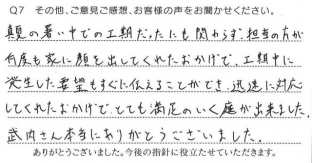 Q7 その他、ご意見ご感想、お客様の声をお聞かせください。
真夏の暑い中での工期だったにも関わらず、担当の方が
何度も家に顔を出してくれたおかげで、工期中に
発生した要望もすぐに伝えることができ、迅速に対応
してくれたおかげでとても満足のいく庭が出来ました。
武内さん本当にありがとうございました。
ありがとうございました。今後の指針に役立たせていただきます。